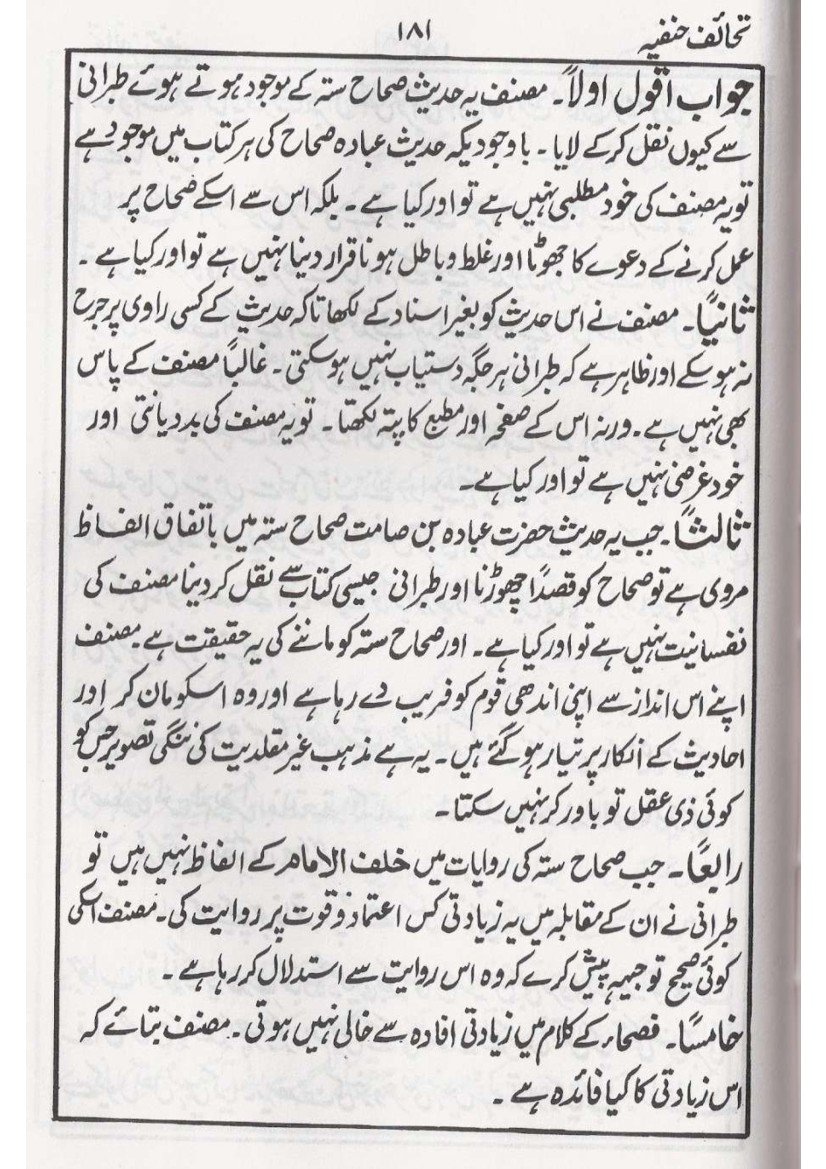 تحائف حنفیہ
۱۸۱
جواب اقول اولاً۔ مصنف یہ حدیث صحاح ستہ کے موجود ہوتے ہوئے طبرانی
سے کیوں نقل کر کے لایا۔ باوجودیکہ حدیث عبادہ صحاح کی ہر کتاب میں موجود ہے
تو یہ مصنف کی خود مطلبی نہیں ہے تو اور کیا ہے۔ بلکہ اس سے اسکے صحاح پر
عمل کرنے کے دعوے کا جھوٹا اور غلط و باطل ہونا قرار دینا نہیں ہے تو اور کیا ہے۔
ثانیاً۔ مصنف نے اس حدیث کو بغیر اسناد کے لکھا تاکہ حدیث کے کسی راوی پر جرح
نہ ہو سکے اور ظاہر ہے کہ طبرانی ہر جگہ دستیاب نہیں ہو سکتی۔ غالباً مصنف کے پاس
بھی نہیں ہے۔ ورنہ اس کے صفحہ اور مطبع کا پتہ لکھتا۔ تو یہ مصنف کی بددیانتی اور
خود غرضی نہیں ہے تو اور کیا ہے۔
ثالثاً۔ جب یہ حدیث حضرت عبادہ بن صامت صحاح ستہ میں باتفاق الفاظ
مروی ہے تو صحاح کو قصداً چھوڑنا اور طبرانی جیسی کتاب سے نقل کر دینا مصنف کی
نفسانیت نہیں ہے تو اور کیا ہے۔ اور صحاح ستہ کو ماننے کی یہ حقیقت ہے۔ مصنف
اپنے اس انداز سے اپنی اندھی قوم کو فریب دے رہا ہے اور وہ اسکو مان کر اور
احادیث کے انکار پر تیار ہو گئے ہیں۔ یہ ہے مذہب غیر مقلدیت کی ننگی تصویر جس کو
کوئی ذی عقل تو باور کر نہیں سکتا۔
رابعاً۔ جب صحاح ستہ کی روایات میں خلف الامام کے الفاظ نہیں ہیں تو
طبرانی نے ان کے مقابلہ میں یہ زیادتی کس اعتماد و قوت پر روایت کی۔ مصنف اسکی
کوئی صحیح توجیہہ پیش کرے کہ وہ اس روایت سے استدلال کر رہا ہے۔
خامساً۔ فصحاء کے کلام میں زیادتی افادہ سے خالی نہیں ہوتی۔ مصنف بتائے کہ
اس زیادتی کا کیا فائدہ ہے۔